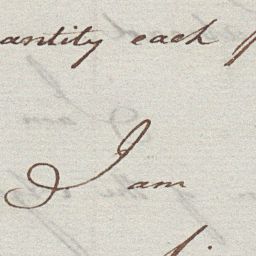 antity each
I am